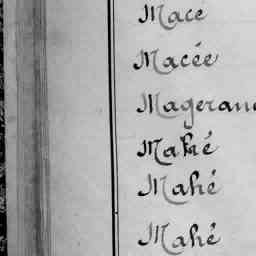 Mace
Macée
Mageran
Mahé
Mahé
Mahé